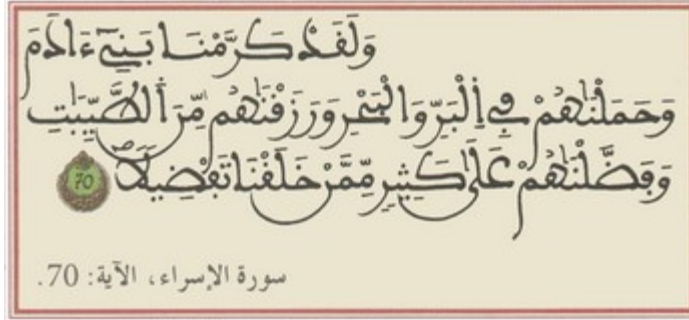 وَلَقَدْ كَرَّمْنَا بَنِيٓ ءَادَمَ
وَحَمَلْنَٰهُمْ فِي اِ۬لْبَرِّ وَالْبَحْرِ وَرَزَقْنَٰهُم مِّنَ اَ۬لطَّيِّبَٰتِ
وَفَضَّلْنَٰهُمْ عَلَىٰ كَثِيرٖ مِّمَّنْ خَلَقْنَا تَفْضِيلاٗ 70
سورة الإسراء، الآية: 70.